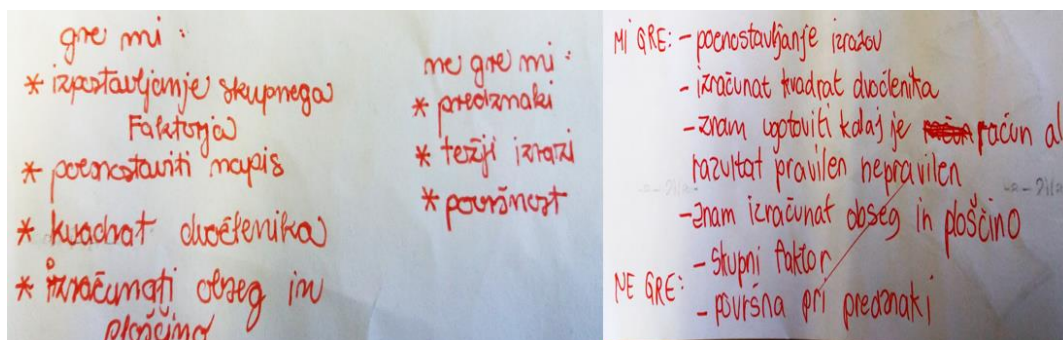 gre mi :
* izpostavljanje skupnega
Faktorja
* poenostaviti napis
* kvadrat dvočlenika
* izračunati obseg in
ploščino
ne gre mi :
* predznaki
* težji izrazi
* površnost
MI GRE: - poenostavljanje izrazov
- izračunat kvadrat dvočlenika
- znam ugotoviti kdaj je račun al
razultat pravilen nepravilen
- znam izračunat obseg in ploščino
- skupni faktor
NE GRE:
- površna pri predznaki